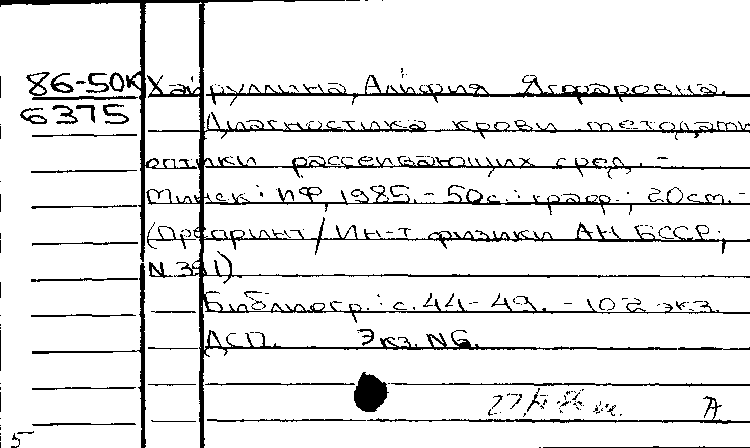 86-50К Хайруллина, Алифия Ягфаровна.
6375
Диагностика крови методами
оптики рассеивающих сред. -
Минск: ИФ, 1985. - 50с.: граф.; 20см. -
(Препринт / Ин-т физики АН БССР;
N 391).
Библиогр.: с. 44-49. - 102 экз.
ДСП. Экз. N6.
А
5